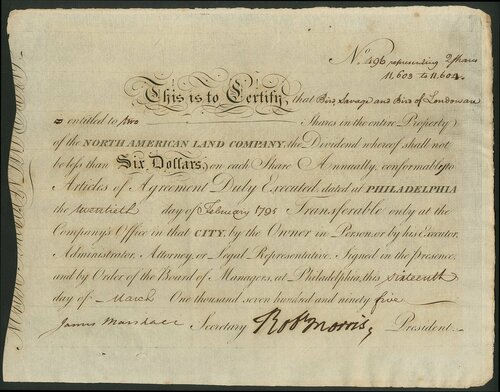 No. 496 representing 2 Shares
11.603 to 11.604
This is to Certify, that Bird, Savage and Bird of London are
entitled to two Shares in the entire Property
of the NORTH AMERICAN LAND COMPANY, the Dividend whereof shall not
be less than Six Dollars, on each Share Annually, conformably to
Articles of Agreement Duly Executed, dated at PHILADELPHIA
the twentieth day of February 1795 Transferable only at the
Company's Office in that CITY, by the Owner in Person, or by his Executor,
Administrator, Attorney, or Legal Representative. Signed in the presence,
and by Order of the Board of Managers, at Philadelphia, this sixteenth
day of March One thousand seven hundred and ninety five
James Marshall Secretary Robt Morris, President.